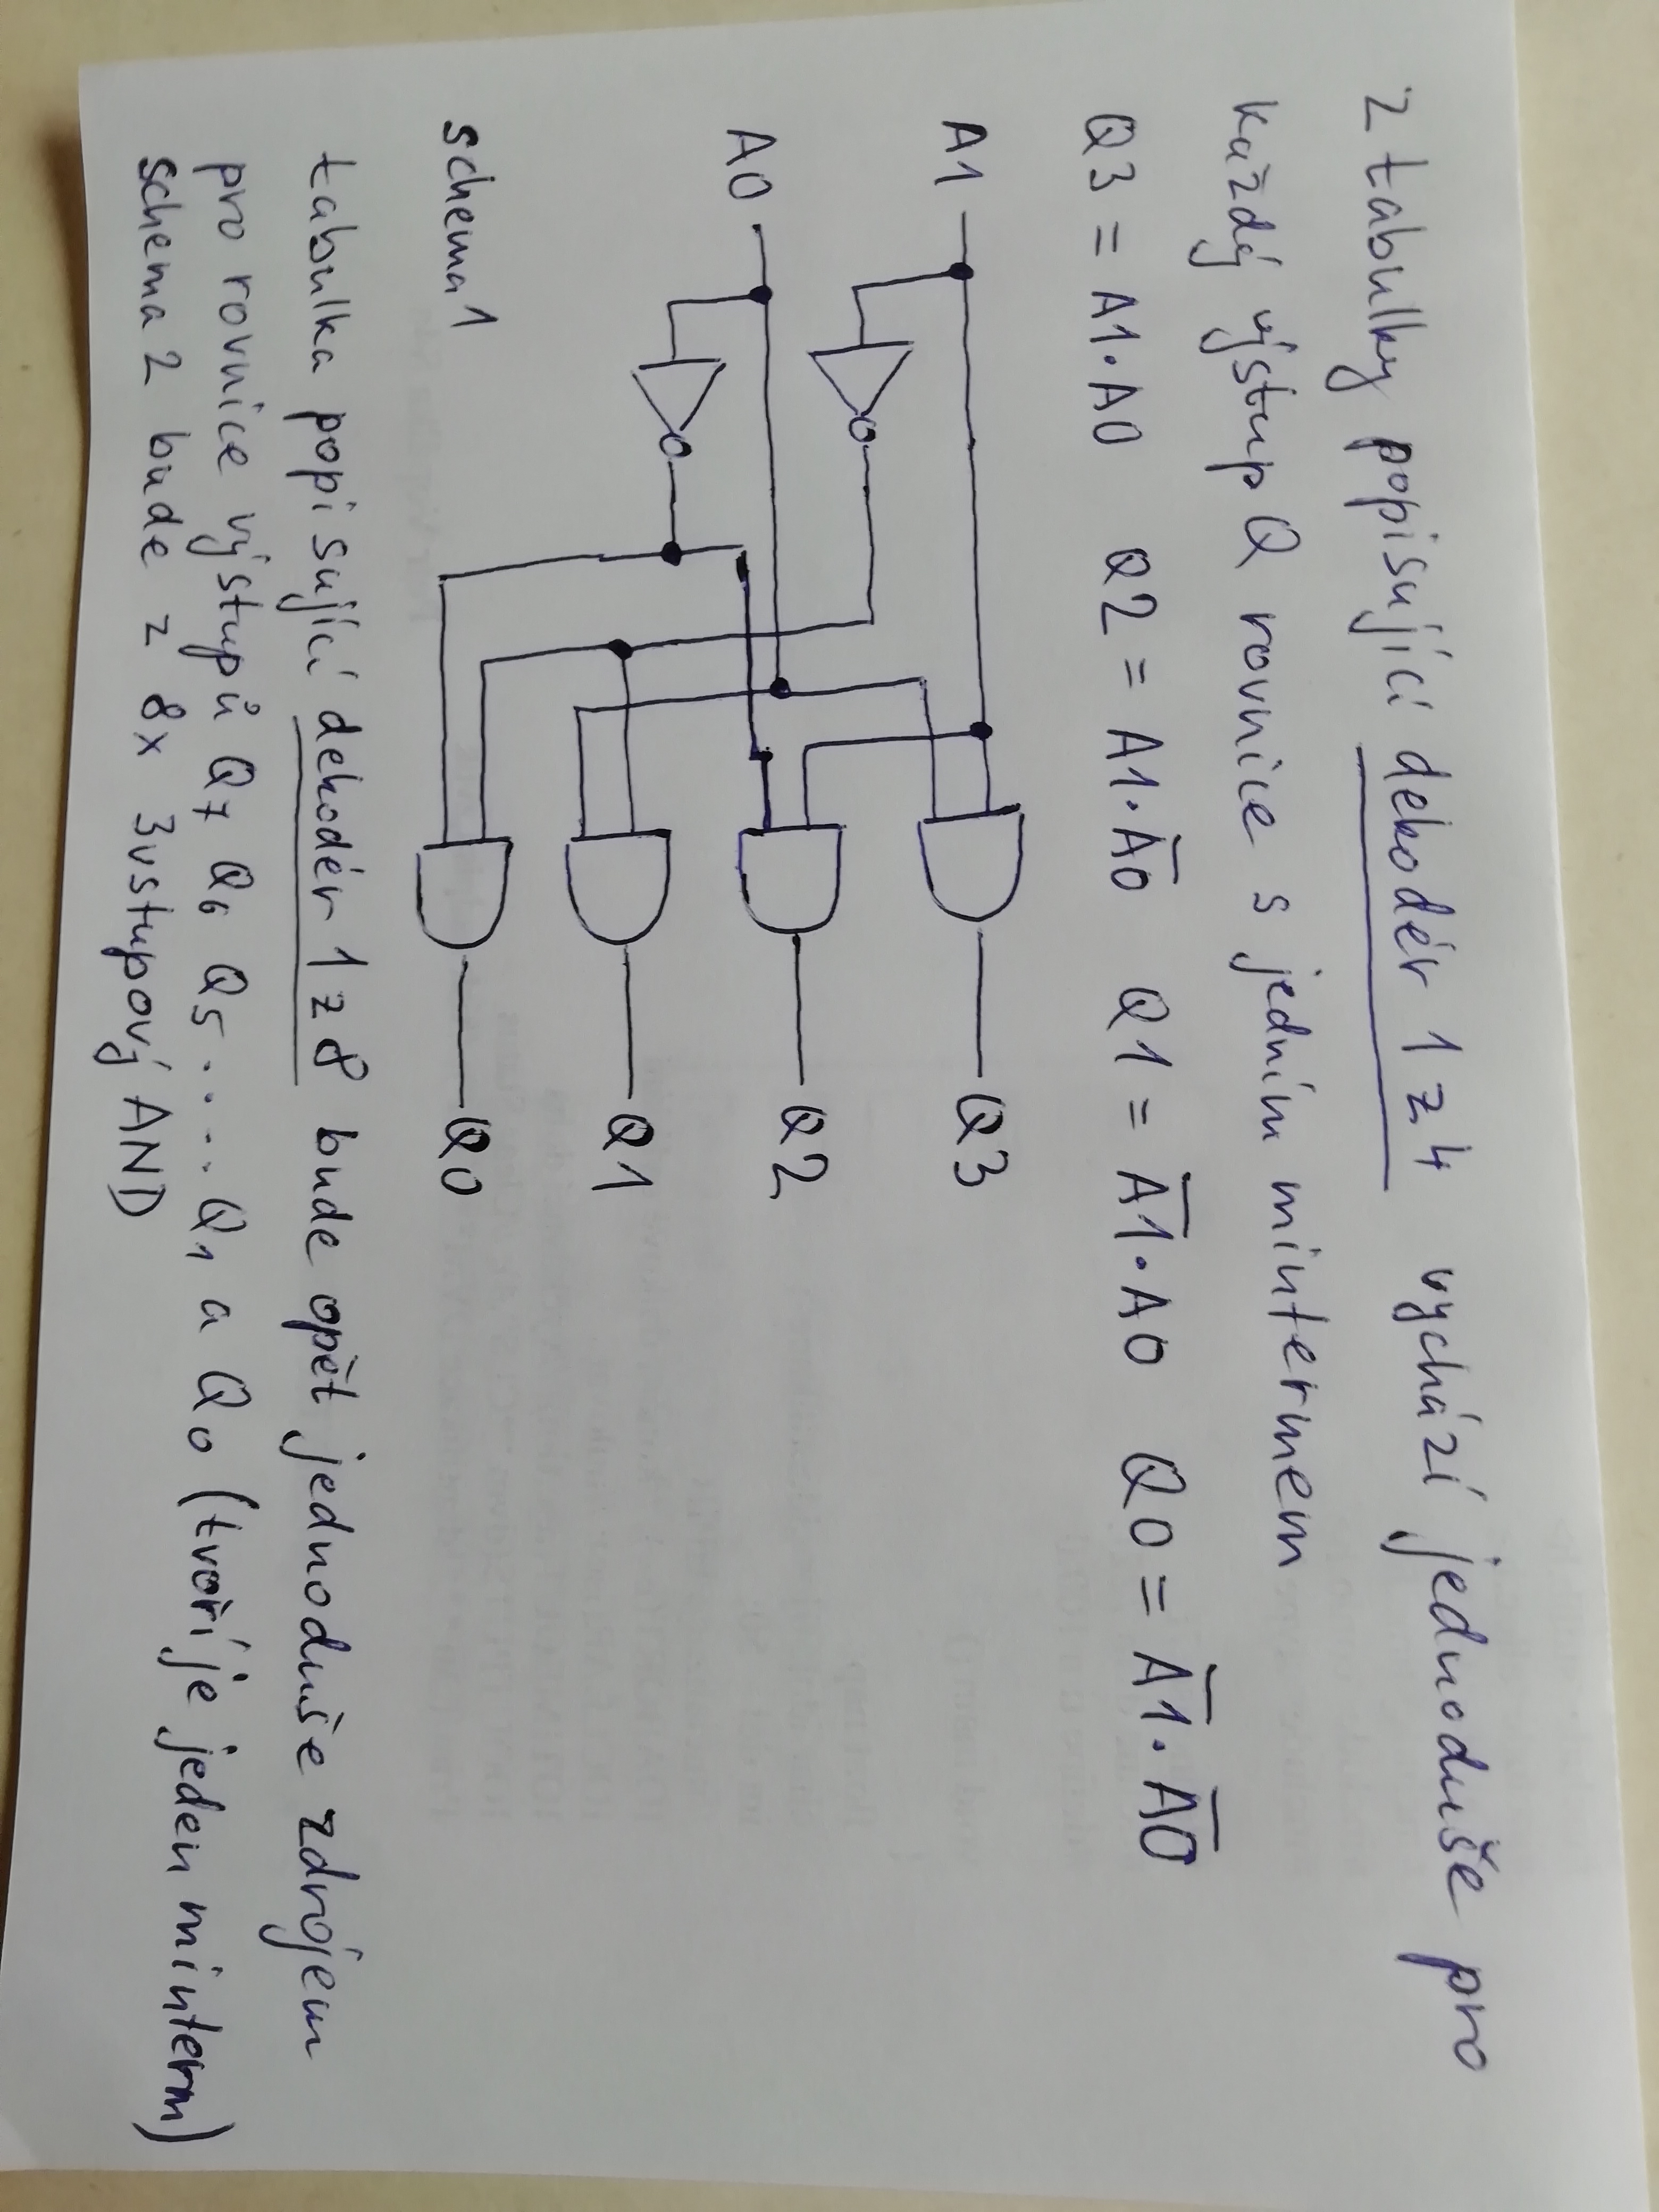 z tabulky popisující dekodér 1 z 4 vychází jednoduše pro
každý výstup Q rovnice s jedním mintermem
Q3 = A1·A0 Q2 = A1·A̅0̅ Q1 = A̅1̅·A0 Q0 = A̅1̅·A̅0̅
A1
Q3
A0
Q2
Q1
schema 1
Q0
tabulka popisující dekodér 1 z 8 bude opět jednoduše zdrojem
pro rovnice výstupů Q7 Q6 Q5 ..... Q1 a Q0 (tvoří je jeden minterm)
schema 2 bude z 8x 3vstupový AND